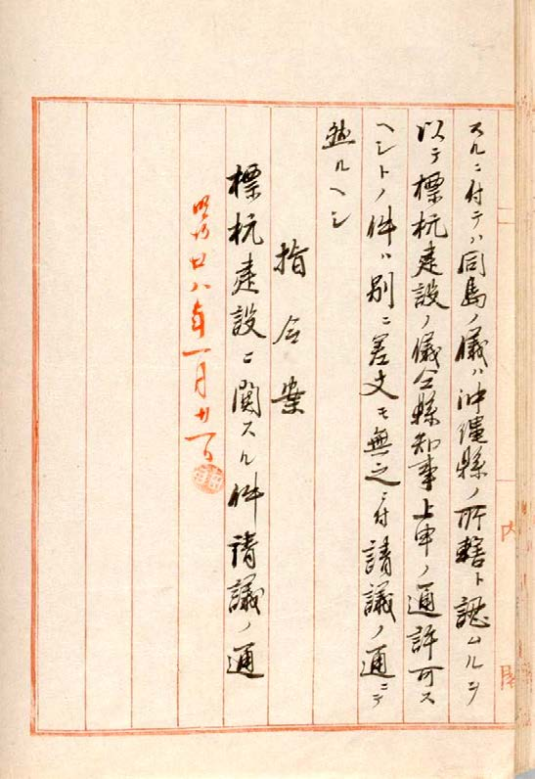 スルニ付テハ同島ノ儀ハ沖縄縣ノ所轄ト認ムルヲ
以テ標杭建設ノ儀仝縣知事上申ノ通許可ス
ヘシトノ件ハ別ニ差支モ無之ニ付請議ノ通ニテ
然ルヘシ
指令案
標杭建設ニ関スル件請議ノ通
明治廿八年一月廿一日
内
閣